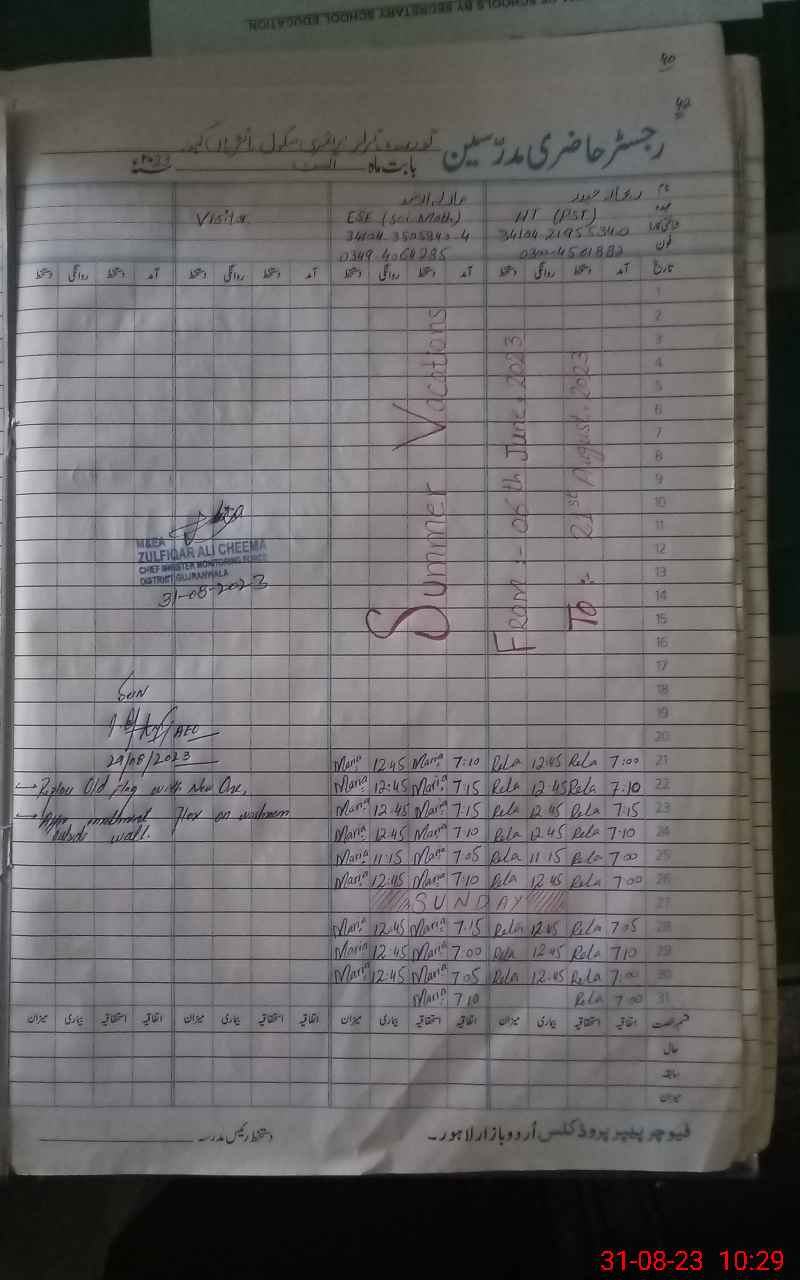 OF SCHOOLS BY SECRETARY SCHOOL EDUCATION.
40
42
رجسٹر حاضری مدرّسین
بابت ماہ اگست ۲۰۲3ء
نام
عہدہ
فون
HT (PST)
ESE (Sci-Math)
Visitor
34104-3505840-4
0349-4064285
تاریخ آمد دستخط روانگی دستخط آمد دستخط روانگی دستخط آمد دستخط روانگی دستخط آمد دستخط روانگی دستخط
1
2
3
4
5
6
7
8
9
10
11
12
13
14
15
16
17
18
19
20
Summer Vacations
From :- 06th June, 2023
To :- 21st August, 2023
M&EA
ZULFIQAR ALI CHEEMA
CHIEF MINISTER MONITORING FORCE
DISTRICT GUJRANWALA
31-08-2023
AEO
29/08/2023
→ Replace Old flag with New One.
→ flex on
outside wall.
Maria 12:45 Maria 7:10 Rela 12:45 Rela 7:00 21
Maria 12:45 Maria 7:15 Rela 12:45 Rela 7:10 22
Maria 12:45 Maria 7:15 Rela 12:45 Rela 7:15 23
Maria 12:45 Maria 7:10 Rela 12:45 Rela 7:10 24
Maria 11:15 Maria 7:05 Rela 11:15 Rela 7:00 25
Maria 12:45 Maria 7:10 Rela 12:45 Rela 7:00 26
SUNDAY 27
Maria 12:45 Maria 7:15 Rela 12:45 Rela 7:05 28
Maria 12:45 Maria 7:00 Rela 12:45 Rela 7:10 29
Maria 12:45 Maria 7:05 Rela 12:45 Rela 7:00 30
Maria 7:10 Rela 7:00 31
قسم رخصت اتفاقیہ استحقاقیہ بیماری میزان اتفاقیہ استحقاقیہ بیماری میزان اتفاقیہ استحقاقیہ بیماری میزان اتفاقیہ استحقاقیہ بیماری میزان
حال
سابقہ
میزان
فیوچر پیپر پروڈکٹس اُردو بازار لاہور۔ دستخط رئیس مدرسہ
31-08-23 10:29